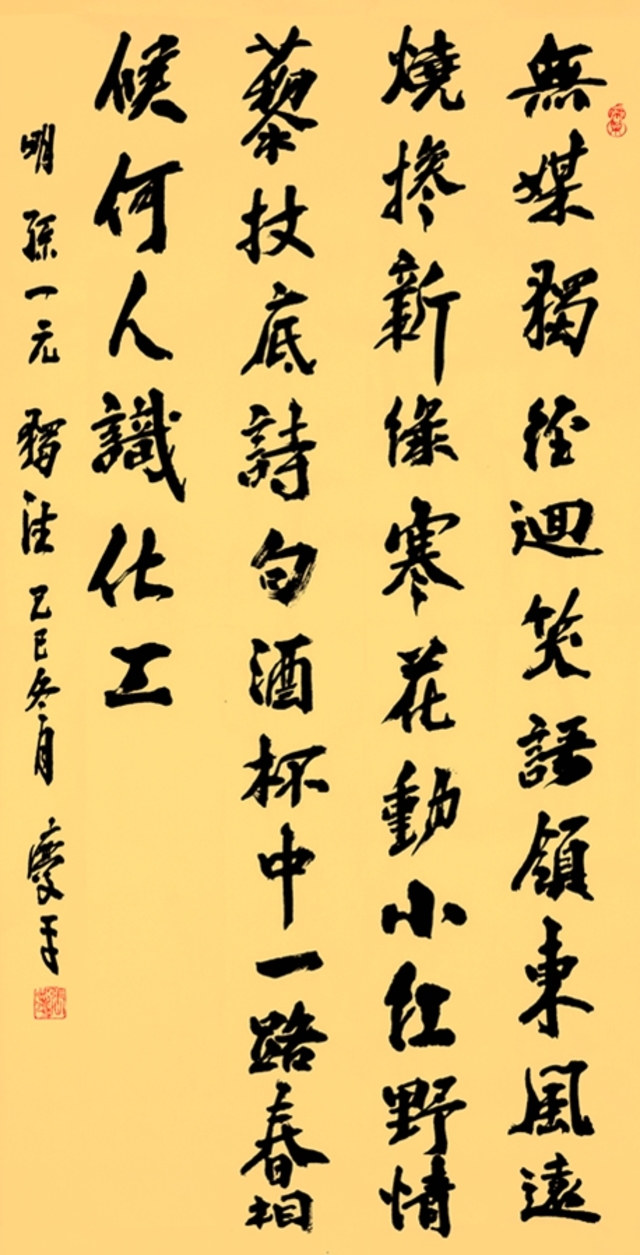 無媒獨徑迴笑語領東風遠
燒摻新綠寒花動小紅野情
藜杖底詩句酒杯中一路春相
候何人識化工
明孫一元獨往乙巳冬月慶平